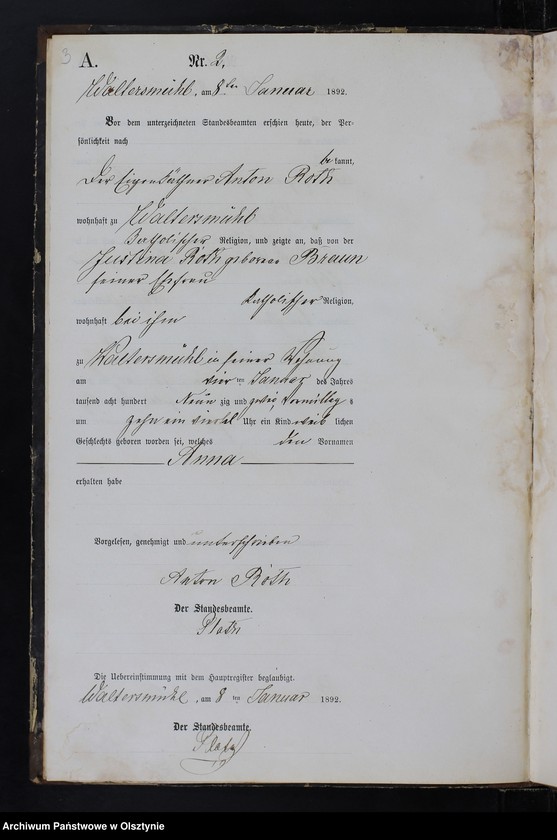 3
A. Nr. 2.
Waltersmühl, am 8ten Januar 1892.
Vor dem unterzeichneten Standesbeamten erschien heute, der Per-
sönlichkeit nach
bekannt,
Der Eigenkäthner Anton Roth
wohnhaft zu Waltersmühl
katholischer Religion, und zeigte an, daß von der
Justina Roth geborene Braun
seiner Ehefrau
katholischer Religion,
wohnhaft bei ihm
zu Waltersmühl in seiner Wohnung
am vierten Januar des Jahres
tausend acht hundert Neun zig und zwei, Vormittags
um zehn ein viertel Uhr ein Kind weib lichen
Geschlechts geboren worden sei, welches den Vornamen
Anna
erhalten habe
Vorgelesen, genehmigt und unterschrieben
Anton Roth
Der Standesbeamte.
Die Uebereinstimmung mit dem Hauptregister beglaubigt.
Waltersmühl, am 8ten Januar 1892.
Der Standesbeamte.
Archiwum Państwowe w Olsztynie